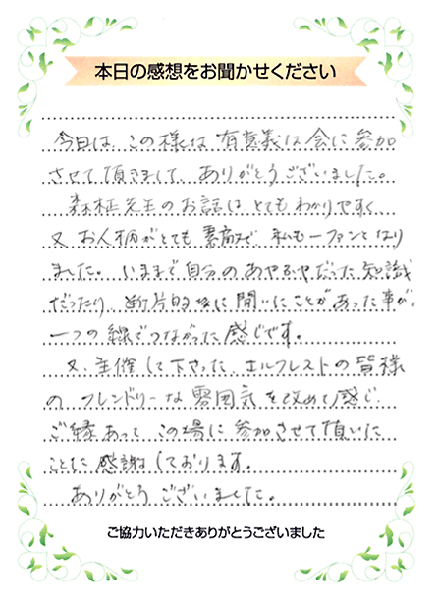 本日の感想をお聞かせください
今日は、この様な有意義な会に参加
させて頂きまして、ありがとうございました。
先生のお話はとてもわかりやすく
又お人柄がとても素敵で、私も一ファンとなり
ました。いままで自分のあやふやだった知識
だったり、断片的に聞いたことがあった事が、
一つの線でつながった感じです。
又、主催して下さった、エルフレストの皆様
の フレンドリーな雰囲気を改めて感じ、
ご縁あって この場に参加させて頂いた
ことに感謝しております。
ありがとうございました。
ご協力いただきありがとうございました